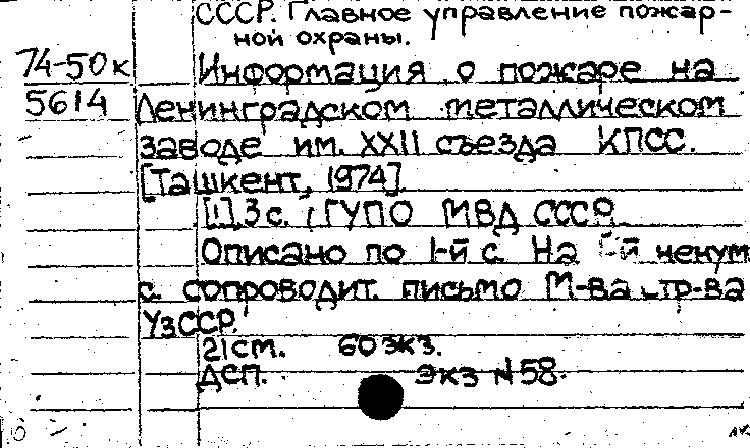 СССР. Главное управление пожар-
ной охраны.
74-50к Информация о пожаре на
5614 Ленинградском металлическом
заводе им. XXII съезда КПСС.
[Ташкент, 1974].
[1], 3 с. ; ГУПО МВД СССР.
Описано по 1-й с. На й ненум.
с. сопроводит. письмо М-ва стр-ва
УзССР.
21 см. 60 экз.
ДСП. Экз № 58.